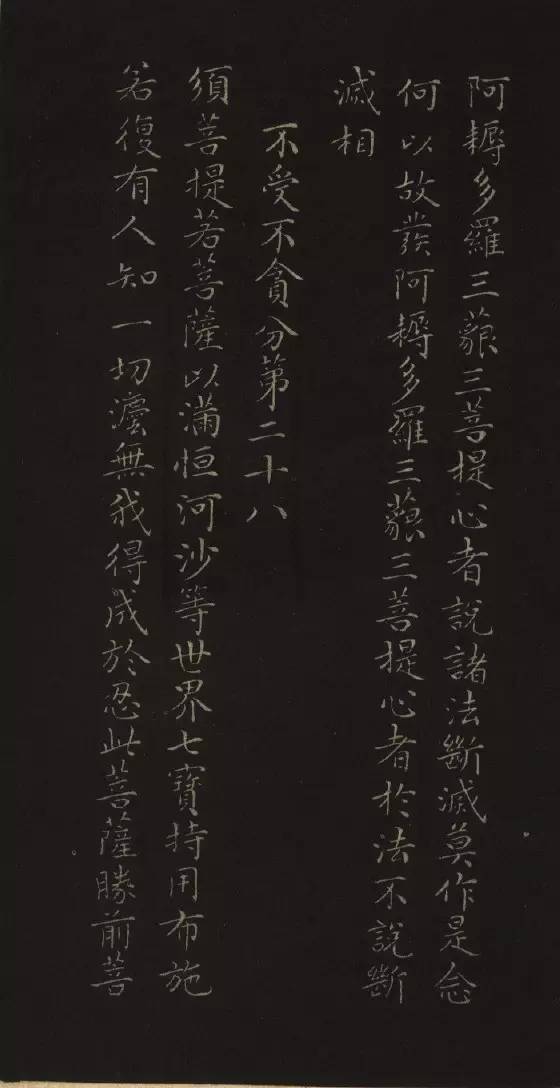 阿耨多羅三藐三菩提心者說諸法斷滅莫作是念
何以故發阿耨多羅三藐三菩提心者於法不說斷
滅相
不受不貪分第二十八
須菩提若菩薩以滿恒河沙等世界七寶持用布施
若復有人知一切法無我得成於忍此菩薩勝前菩